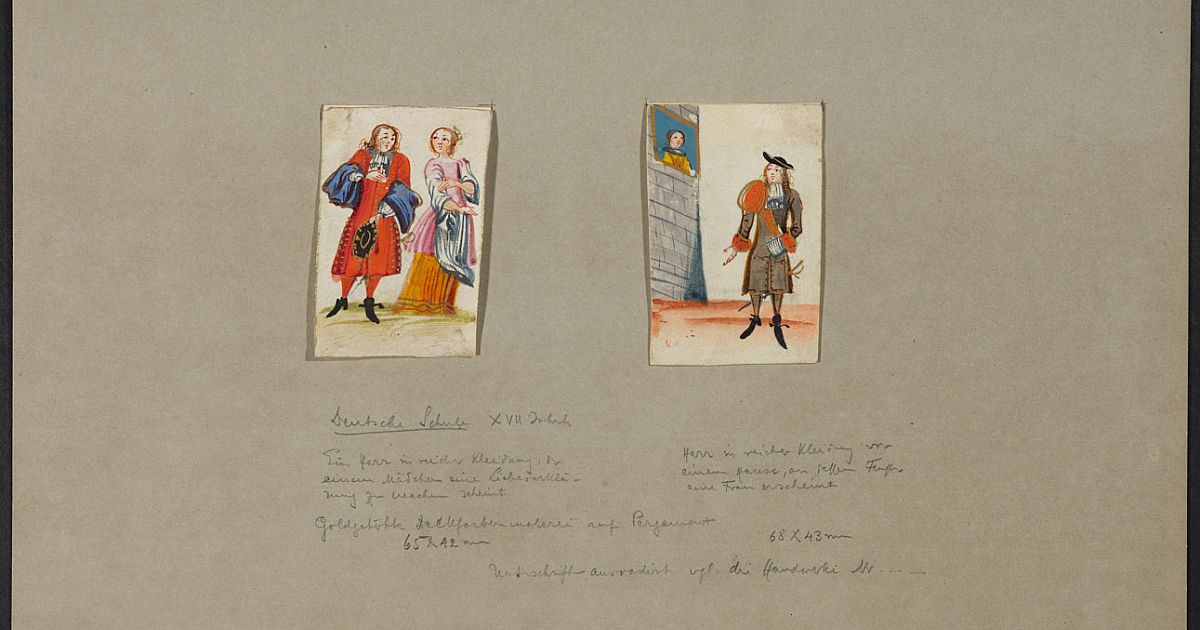 Deutsche Schule XVII Jahrh
Ein Herr in reicher Kleidung, der
einem Mädchen eine Liebeserklä-
rung zu machen scheint
Herr in reicher Kleidung vor
einem Hause, an dessen Fenster
eine Frau erscheint
Goldgehöhte Deckfarbenmalerei auf Pergament
65 X 42 mm
68 X 43 mm
Unterschrift ausradirt vgl. die Handwerke Nr. ....